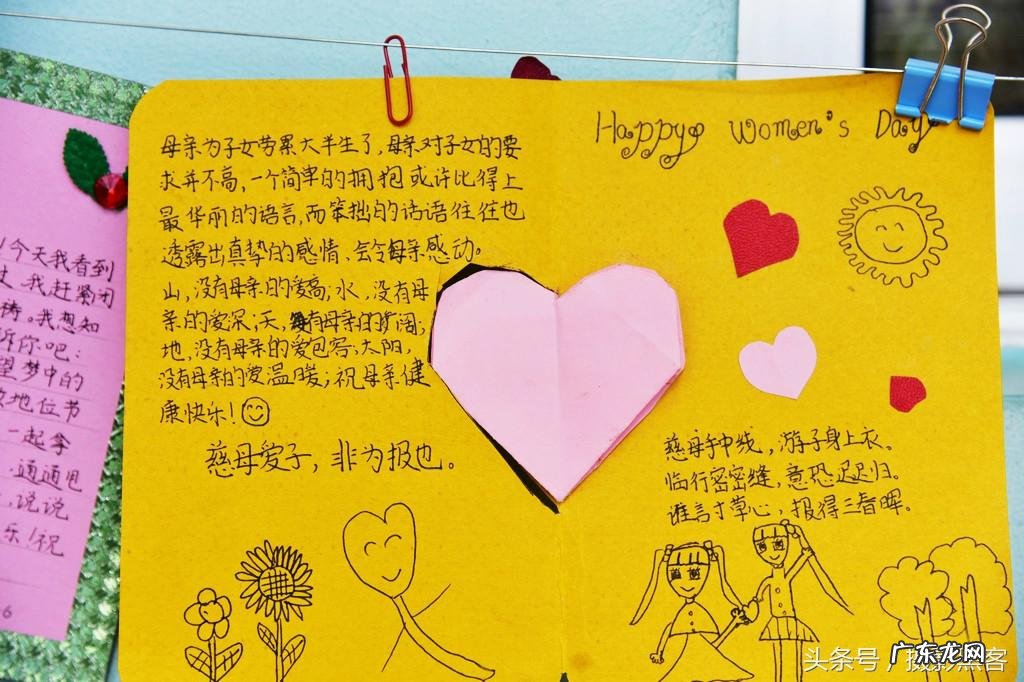 今天我看到
我赶紧闭
祷。我想知
诉你吧：
望梦中的
地位节
一起拿
，通通甩
，说说
乐！祝
6
母亲为子女劳累大半生了，母亲对子女的要
求并不高，一个简单的拥抱或许比得上
最华丽的语言，而笨拙的话语往往也
透露出真挚的感情、会令母亲感动。
山，没有母亲的爱高；水，没有母
亲的爱深；天，没有母亲的爱广阔；
地，没有母亲的爱包容；太阳，
没有母亲的爱温暖；祝母亲健
康快乐！
慈母爱子，非为报也。
Happy Women's Day
慈母手中线，游子身上衣。
临行密密缝，意恐迟迟归。
谁言寸草心，报得三春晖。
头条号
广东龙网